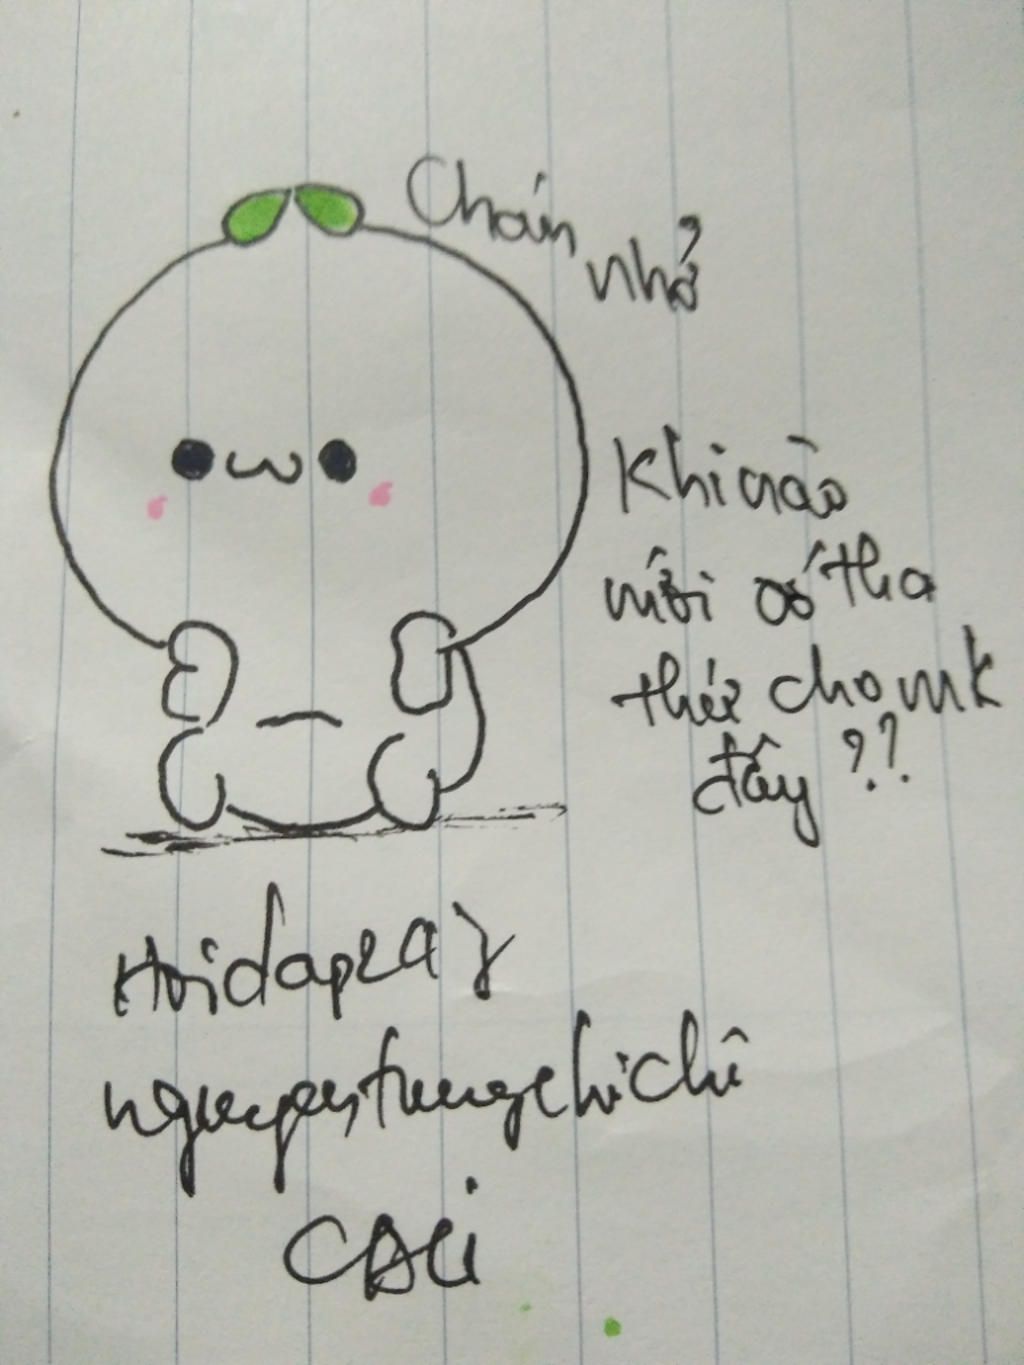 Chán
nhở
Khi nào
mới có tha
thứ cho mk
đây ??
Hoidap247
nguyentungchichi